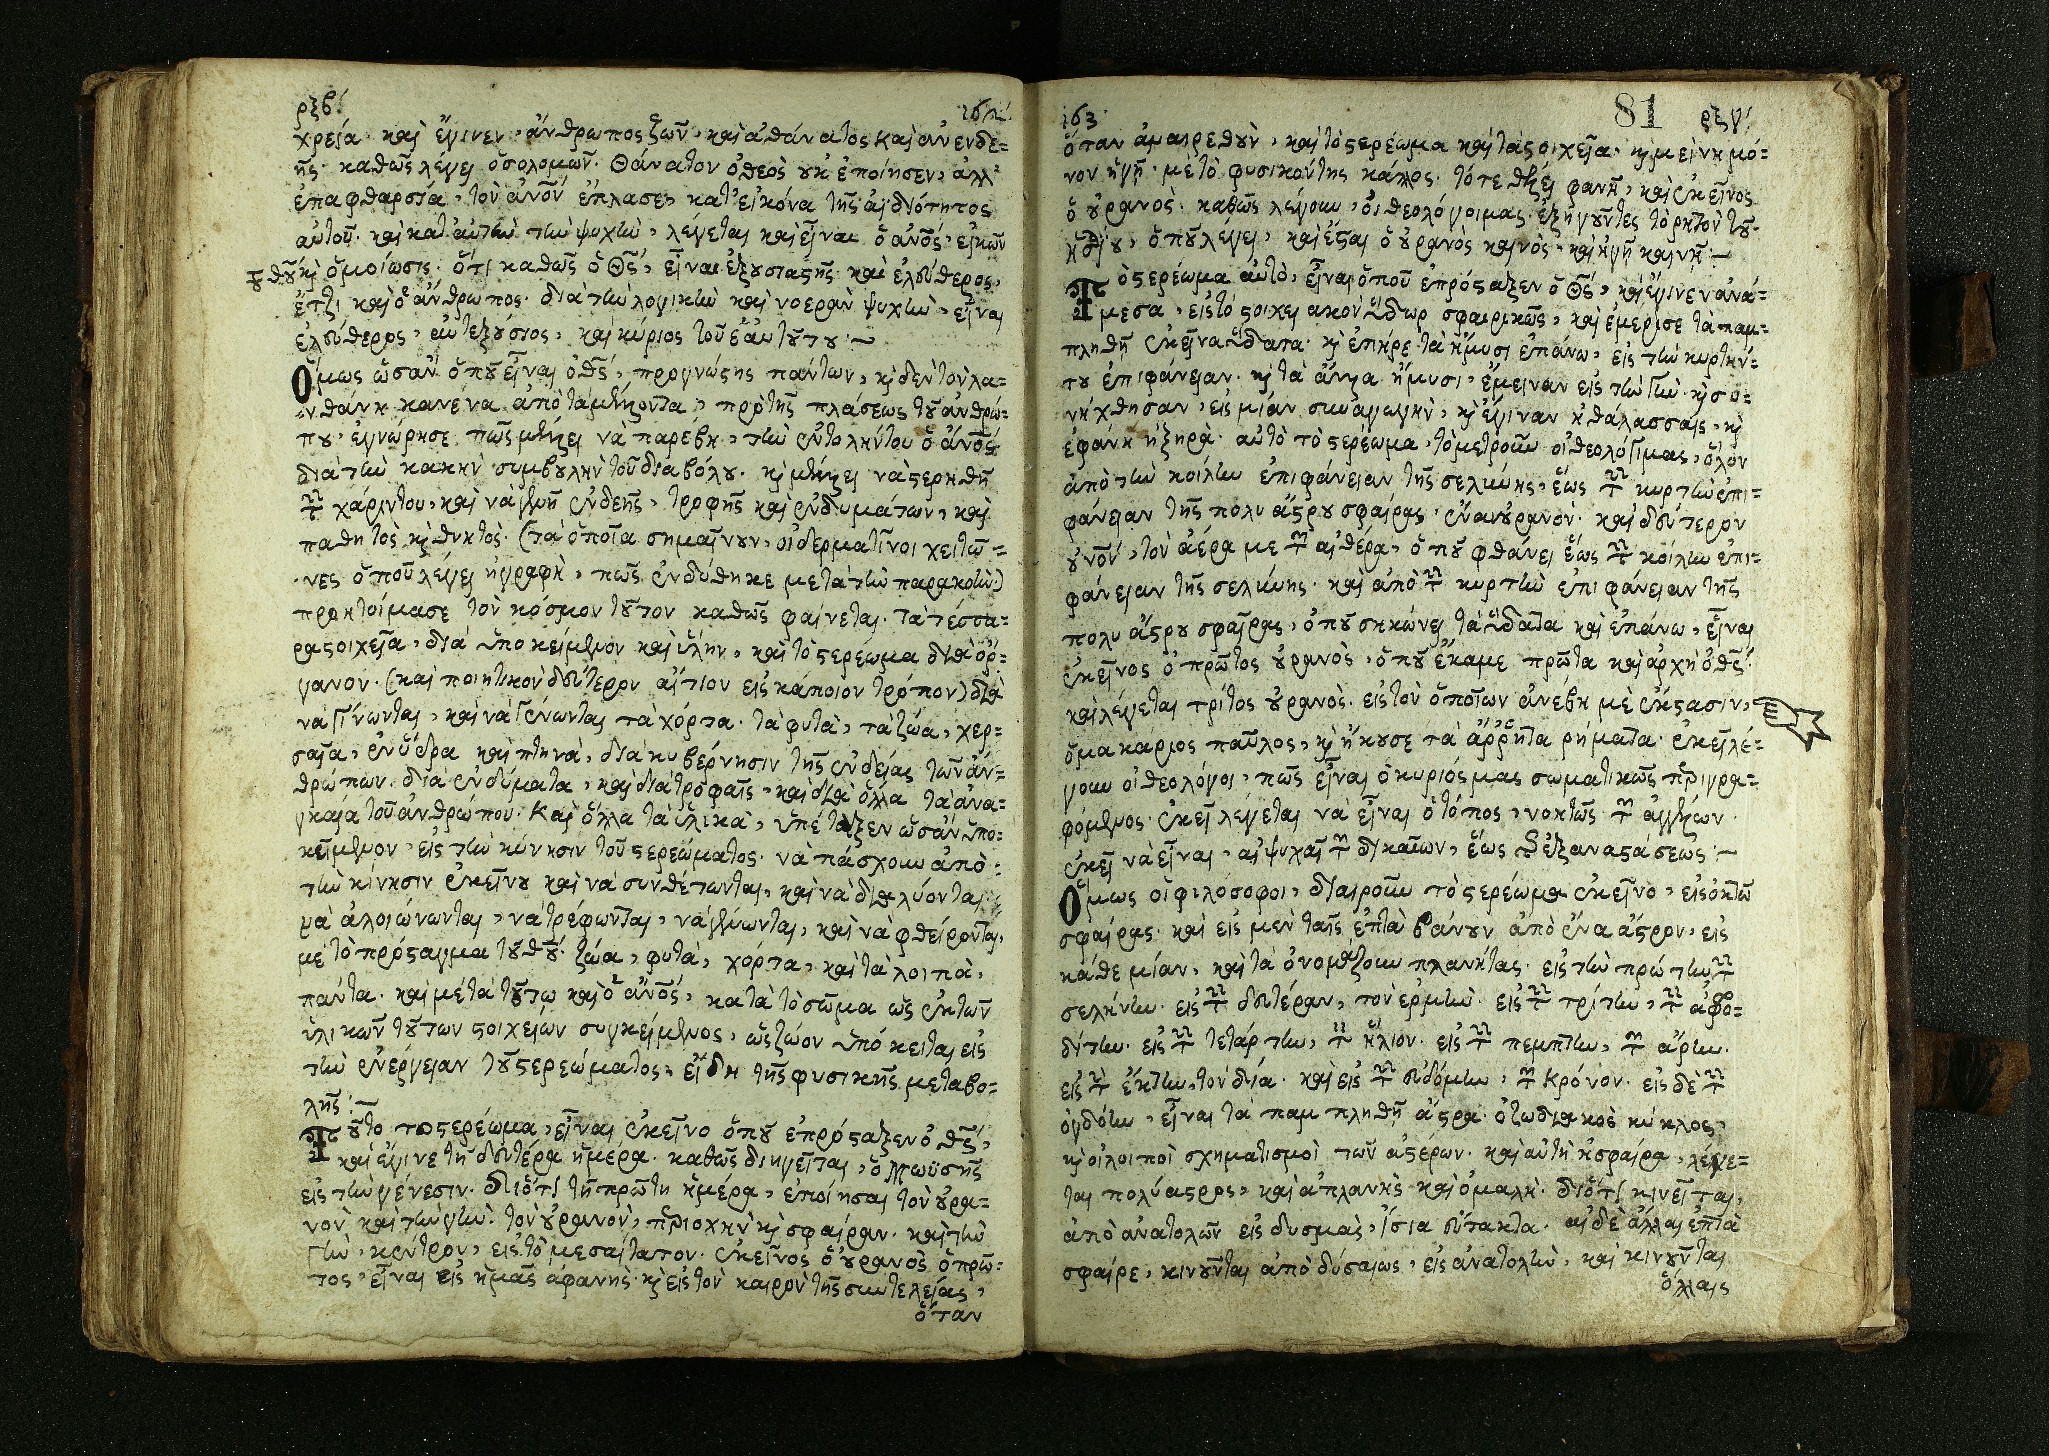 ρξβ΄ 162
χρεία· καὶ ἔγινεν, ἄνθρωπος ζῶν, καὶ ἀθάνατος καὶ ἀνενδε=
ὴς· καθὼς λέγει ὁ σολομῶν· Θάνατον ὁ θεὸς οὐκ ἐποίησεν, ἀλλ'
ἐπ' ἀφθαρσία, τὸν ἄνον ἔπλασε, κατ' εἰκόνα τῆς ἀϊδιότητος
αὐτοῦ· καὶ κατ' αὐτὴν τὴν ψυχὴν, λέγεται καὶ εἶναι ὁ ἄνος, εἰκὼν
τοῦ θῦ κὶ ὁμοίωσις· ὅτι καθὼς ὁ Θς, εἶναι ἐξουσιαστὴς καὶ ἐλεύθερος,
ἔτζι καὶ ὁ ἄνθρωπος· διὰ τὴν λογικὴν καὶ νοερὰν ψυχὴν, εἶναι
ἐλεύθερος, αὐτεξούσιος, καὶ κύριος τοῦ ἑαυτοῦ του·~
Ὅμως ὡσὰν ὁποῦ εἶναι ὁ θς, προγνώστης πάντων, κὶ δὲν τὸν λα=
νθάνη κανένα ἀπὸ τὰ μέλλοντα, πρὸ τῆς πλάσεως τοῦ ἀνθρώ=
που· ἐγνώρησε πῶς μέλλει νὰ παρέβη, τὴν ἐντολήν του ὁ ἄνος
διὰ τὴν κακὴν συμβουλὴν τοῦ διαβόλου· κὶ μέλλει νὰ στερηθῆ
τὴν χάριν του, καὶ νὰ γενῆ ἐνδεὴς, τροφῆς καὶ ἐνδυμάτων, καὶ
παθητὸς κὶ θνητὸς· (τὰ ὁποῖα σημαίνουν, οἱ δερματῖνοι χειτῶ=
νες ὁποῦ λέγει ἡ γραφὴ, πῶς ἐνδύθηκε μετὰ τὴν παρακοήν·)
προητοίμασε τὸν κόσμον τοῦτον καθὼς φαίνεται· τὰ τέσσα=
ρα στοιχεῖα, διὰ ὑποκείμενον καὶ ὕλην, καὶ τὸ στερέωμα διὰ ὄρ=
γανον· (καὶ ποιητικὸν δεύτερον αἴτιον εἰς κάποιον τρόπον) διὰ
νὰ γίνωνται, καὶ νὰ γεννῶνται τὰ χόρτα· τὰ φυτὰ, τὰ ζῶα, χερ=
σαῖα, ἐνύδρα καὶ πτηνὰ, διὰ κυβέρνησιν τῆς ἐνδείας τῶν ἀν=
θρώπων· διὰ ἐνδύματα, καὶ διὰ τροφαῖς, καὶ διὰ ὅλα τὰ ἀνα=
γκαῖα τοῦ ἀνθρώπου· Καὶ ὅλα τὰ ὑλικὰ, ὑπέταξεν ὡσὰν ὑπο=
κείμενον, εἰς τὴν κίνησιν τοῦ στερεώματος· νὰ πάσχουν ἀπὸ
τὴν κίνησιν ἐκείνου καὶ νὰ συνθέτωνται, καὶ νὰ διαλύονται,
νὰ ἀλοιώνωνται, νὰ τρέφωνται, νὰ γενῶνται, καὶ νὰ φθείρονται,
μὲ τὸ πρόσταγμα τοῦ θῦ· ζῶα, φυτὰ, χόρτα, καὶ τὰ λοιπὰ,
πάντα· καὶ μετὰ τούτω καὶ ὁ ἄνος, κατὰ τὸ σῶμα ὡς ἐκ τῶν
ὑλικῶν τούτων στοιχείων συγκείμενος, ὡς ζῶον ὑπόκειται εἰς
τὴν ἐνέργειαν τοῦ στερεώματος, εἴδη τῆς φυσικῆς μεταβο=
λῆς:~
Τοῦτο τὸ στερέωμα, εἶναι ἐκεῖνο ὁποῦ ἐπρόσταξεν ὁ θς,
καὶ ἔγινε τῆ δευτέρα ἡμέρα· καθὼς διηγεῖται, ὁ Μωϋσῆς
εἰς τὴν γένεσιν· διότι τῆ πρώτη ἡμέρα, ἐποίησαι τὸν οὐρα=
νὸν καὶ τὴν γῆν· τὸν οὐρανὸν, περιοχὴν κὶ σφαίραν· καὶ τὴν
γῆν, κέντρον, εἰς τὸ μεσαίτατον· ἐκεῖνος ὁ οὐρανὸς ὁ πρῶ=
τος, εἶναι εἰς ἡμᾶς ἀφανὴς κὶ εἰς τὸν καιρὸν τῆς συντελείας,
ὅταν
163 81 ρξγ΄
ὅταν ἀναιρεθοῦν, καὶ τὸ στερέωμα καὶ τὰ στοιχεῖα, κὶ μείνη μό=
νον ἡ γῆ, μὲ τὸ φυσικόν της κάλλος· τότε θέλει φανῆ, καὶ ἐκεῖνος
ὁ οὐρανὸς· καθὼς λέγουν, οἱ θεολόγοι μας ἐξηγοῦντες τὸ ρητὸν τοῦ
ὁποῦ λέγει, καὶ ἔσται ὁ οὐρανὸς καινὸς, καὶ ἡ γῆ καινὴ·~
Τὸ στερέωμα αὐτὸ, εἶναι ὁποῦ ἐπρόσταξεν ὁ Θς, καὶ ἔγινεν ἀνά=
μεσα, εἰς τὸ στοιχειακὸν ὕδωρ σφαιρικῶς, καὶ ἐμέρισε τὰ παμ=
πληθῆ ἐκεῖνα ὕδατα· κὶ ἐπῆρε τὰ ἥμυσι ἐπάνω, εἰς τὴν κυρτήν
του ἐπιφάνειαν· κὶ τὰ ἄλλα ἥμυσι, ἔμειναν εἰς τὴν γῆν· κὶ συ=
νήχθησαν, εἰς μίαν συναγωγὴν, κὶ ἔγιναν ἡ θάλασσαις, κὶ
ἐφάνη ἡ ξηρὰ· αὐτὸ τὸ στερέωμα, τὸ μετροῦν οἱ θεολόγοι μας, ὅλον
ἀπὸ τὴν κοίλην ἐπιφάνειαν τῆς σελήνης, ἕως τὴν κυρτὴν ἐπι=
φάνειαν τῆς πολυάστρου σφαίρας, ἕναν οὐρανὸν· καὶ δεύτερον
οὐνὸν, τὸν ἀέρα με τὸν αἰθέρα, ὁποῦ φθάνει ἕως τὴν κοίλην ἐπι=
φάνειαν τῆς σελήνης· καὶ ἀπὸ τὴν κυρτὴν ἐπιφάνειαν τῆς
πολυάστρου σφαίρας, ὁποῦ σηκώνει τὰ ὕδατα καὶ ἐπάνω, εἶναι
ἐκεῖνος ὁ πρῶτος οὐρανὸς, ὁποῦ ἔκαμε πρῶτα καὶ ἀρχὴ ὁ θς·
καὶ λέγεται τρίτος οὐρανὸς· εἰς τὸν ὁποίων ἀνέβη μὲ ἔκστασιν,
ὁ μακάριος παῦλος, κὶ ἤκουσε τὰ ἄρρητα ρήματα· ἐκεῖ λέ=
γουν οἱ θεολόγοι, πῶς εἶναι ὁ κύριός μας σωματικῶς περιγρα=
φόμενος· ἐκεῖ λέγεται νὰ εἶναι ὁ τόπος, νοητῶς τῶν ἀγγέλων·
ἐκεῖ νὰ εἶναι, αἱ ψυχαὶ τῶν δικαίων, ἕως τῆς ἐξαναστάσεως·~
Ὅμως οἱ φιλόσοφοι, διαιροῦν τὸ στερέωμα ἐκεῖνο, εἰς ὀκτὼ
σφαίρας· καὶ εἰς μὲν ταῖς ἑπτὰ βάνουν ἀπὸ ἕνα ἄστρον, εἰς
κάθε μίαν, καὶ τὰ ὀνομάζουν πλανήτας· εἰς τὴν πρώτην τὴν
σελήνην· εἰς τὴν δευτέραν, τὸν ἑρμῆν· εἰς τὴν τρίτην, τὴν ἀφρο=
δίτην· εἰς τὴν τετάρτην, τὸν ἥλιον· εἰς τὴν πέμπτην, τὸν ἄρην·
εἰς τὴν ἕκτην, τὸν δία· καὶ εἰς τὴν ἑβδόμην, τὸν Κρόνον· εἰς δὲ τὴν
ὀγδόην, εἶναι τὰ παμπληθῆ ἄστρα· ὁ ζωδιακὸς κύκλος,
κὶ οἱ λοιποὶ σχηματισμοὶ τῶν ἀστέρων· καὶ αὐτὴ ἡ σφαίρα, λέγε=
ται πολύαστρος, καὶ ἀπλανὴς καὶ ὁμαλὴ· διότι κινεῖται,
ἀπὸ ἀνατολῶν εἰς δυσμὰς, ἴσια εὔτακτα· αἱ δὲ ἄλλαι ἑπτὰ
σφαίρε, κινοῦνται ἀπὸ δύσεως, εἰς ἀνατολὴν, καὶ κινοῦνται
ὅλαις